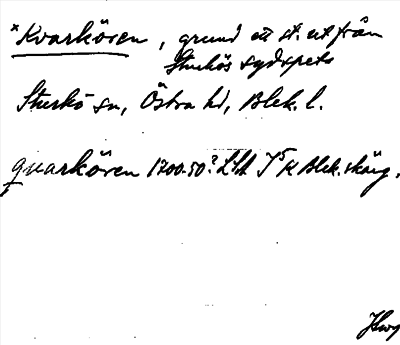 *Kvarkören, grund ett st. ut från
Sturkös sydspets
Sturkö sn, Östra hd, Blek. l.
quarkören 1700-50? LSA I5 K Blek. skärg.